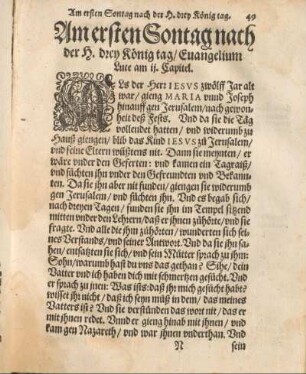 Am ersten Sontag nach der H. drey König tag. 49
Am ersten Sontag nach
der H. drey König tag/ Euangelium
Luce am ij. Capitel.
ALs der Herr IESVS zwölff Jar alt
war/ gieng MARIA vnnd Joseph
hinauff gen Jerusalem/ nach gewon
heit deß Fests. Vnd da sie die Täg
vollendet hatten/ vnd widerumb zu
Hauß giengen/ blib das Kind IESVS zu Jerusalem/
vnd seine Eltern wüßtens nit. Dann sie meynten/ er
wäre vnder den Geferten: vnd kamen ein Tagraiß/
vnd süchten jhn vnder den Gefreundten vnd Bekann
ten. Da sie jhn aber nit funden/ giengen sie widerumb
gen Jerusalem/ vnd süchten jhn. Vnd es begab sich/
nach dreyen Tagen/ funden sie jhn im Tempel sitzend
mitten vnder den Lehrern/ daß er jhnen zühörte/ vnd sie
fragte. Vnd alle die jhm zühörten/ wunderten sich sei
nes Verstands/ vnd seiner Antwort. Vnd da sie jhn sa
hen/ entsatzten sie sich/ vnd sein Mütter sprach zu jhm:
Sohn/ warumb hast du vns das gethan? Sihe/ dein
Vatter vnd ich haben dich mit schmertzen gesücht. Vnd
er sprach zu jnen: Was ists/ daß jhr mich gesücht habt?
wisset jhr nicht/ daß ich seyn müß in dem/ das meines
Vatters ist? Vnd sie verstunden das wort nit/ das er
mit jhnen redet. Vnnd er gieng hinab mit jhnen/ vnd
kam gen Nazareth/ vnd war jhnen vnderthan. Vnd
N sein